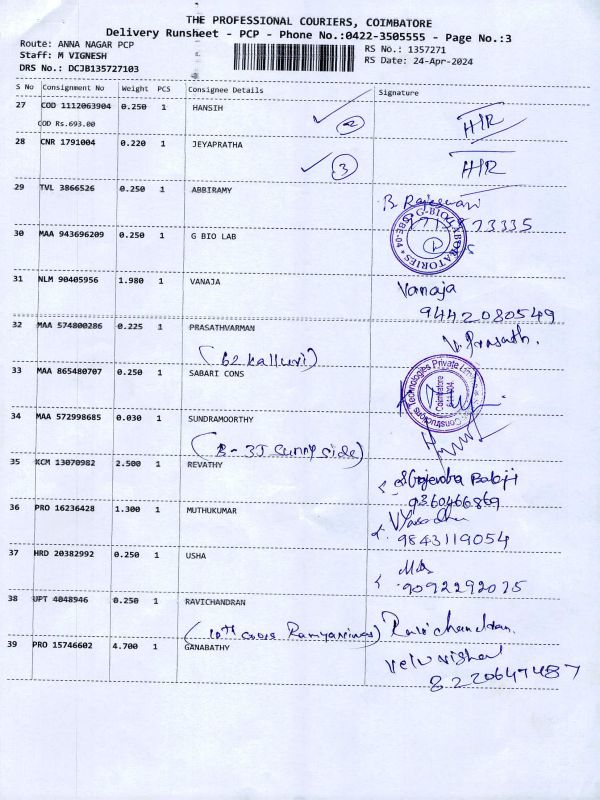 THE PROFESSIONAL COURIERS, COIMBATORE
Delivery Runsheet - PCP - Phone No.:0422-3505555 - Page No.:3
Route: ANNA NAGAR PCP
RS No.: 1357271
Staff: M VIGNESH
RS Date: 24-Apr-2024
DRS No.: DCJB135727103
S No Consignment No Weight PCS Consignee Details Signature
27 COD 1112063904 0.250 1 HANSIH
COD Rs.693.00 2
28 CNR 1791004 0.220 1 JEYAPRATHA
3
29 TVL 3866526 0.250 1 ABBIRAMY B. Rajeswari
30 MAA 943696209 0.250 1 G BIO LAB
31 NLM 90405956 1.980 1 VANAJA Vanaja
9442080549
32 MAA 574800286 0.225 1 PRASATHVARMAN V. Prasath.
(B2 kalluri)
33 MAA 865480707 0.250 1 SABARI CONS
34 MAA 572998685 0.030 1 SUNDRAMOORTHY
(B-3J Sunny side)
35 KCM 13070982 2.500 1 REVATHY Gajendra Babji
9360466869
36 PRO 16236428 1.300 1 MUTHUKUMAR
9843119054
37 HRD 20382992 0.250 1 USHA
9092292075
38 UPT 4048946 0.250 1 RAVICHANDRAN
(10th cross Ramyanivas) Ravichandran.
39 PRO 15746602 4.700 1 GANABATHY Velu vishal
8220647487